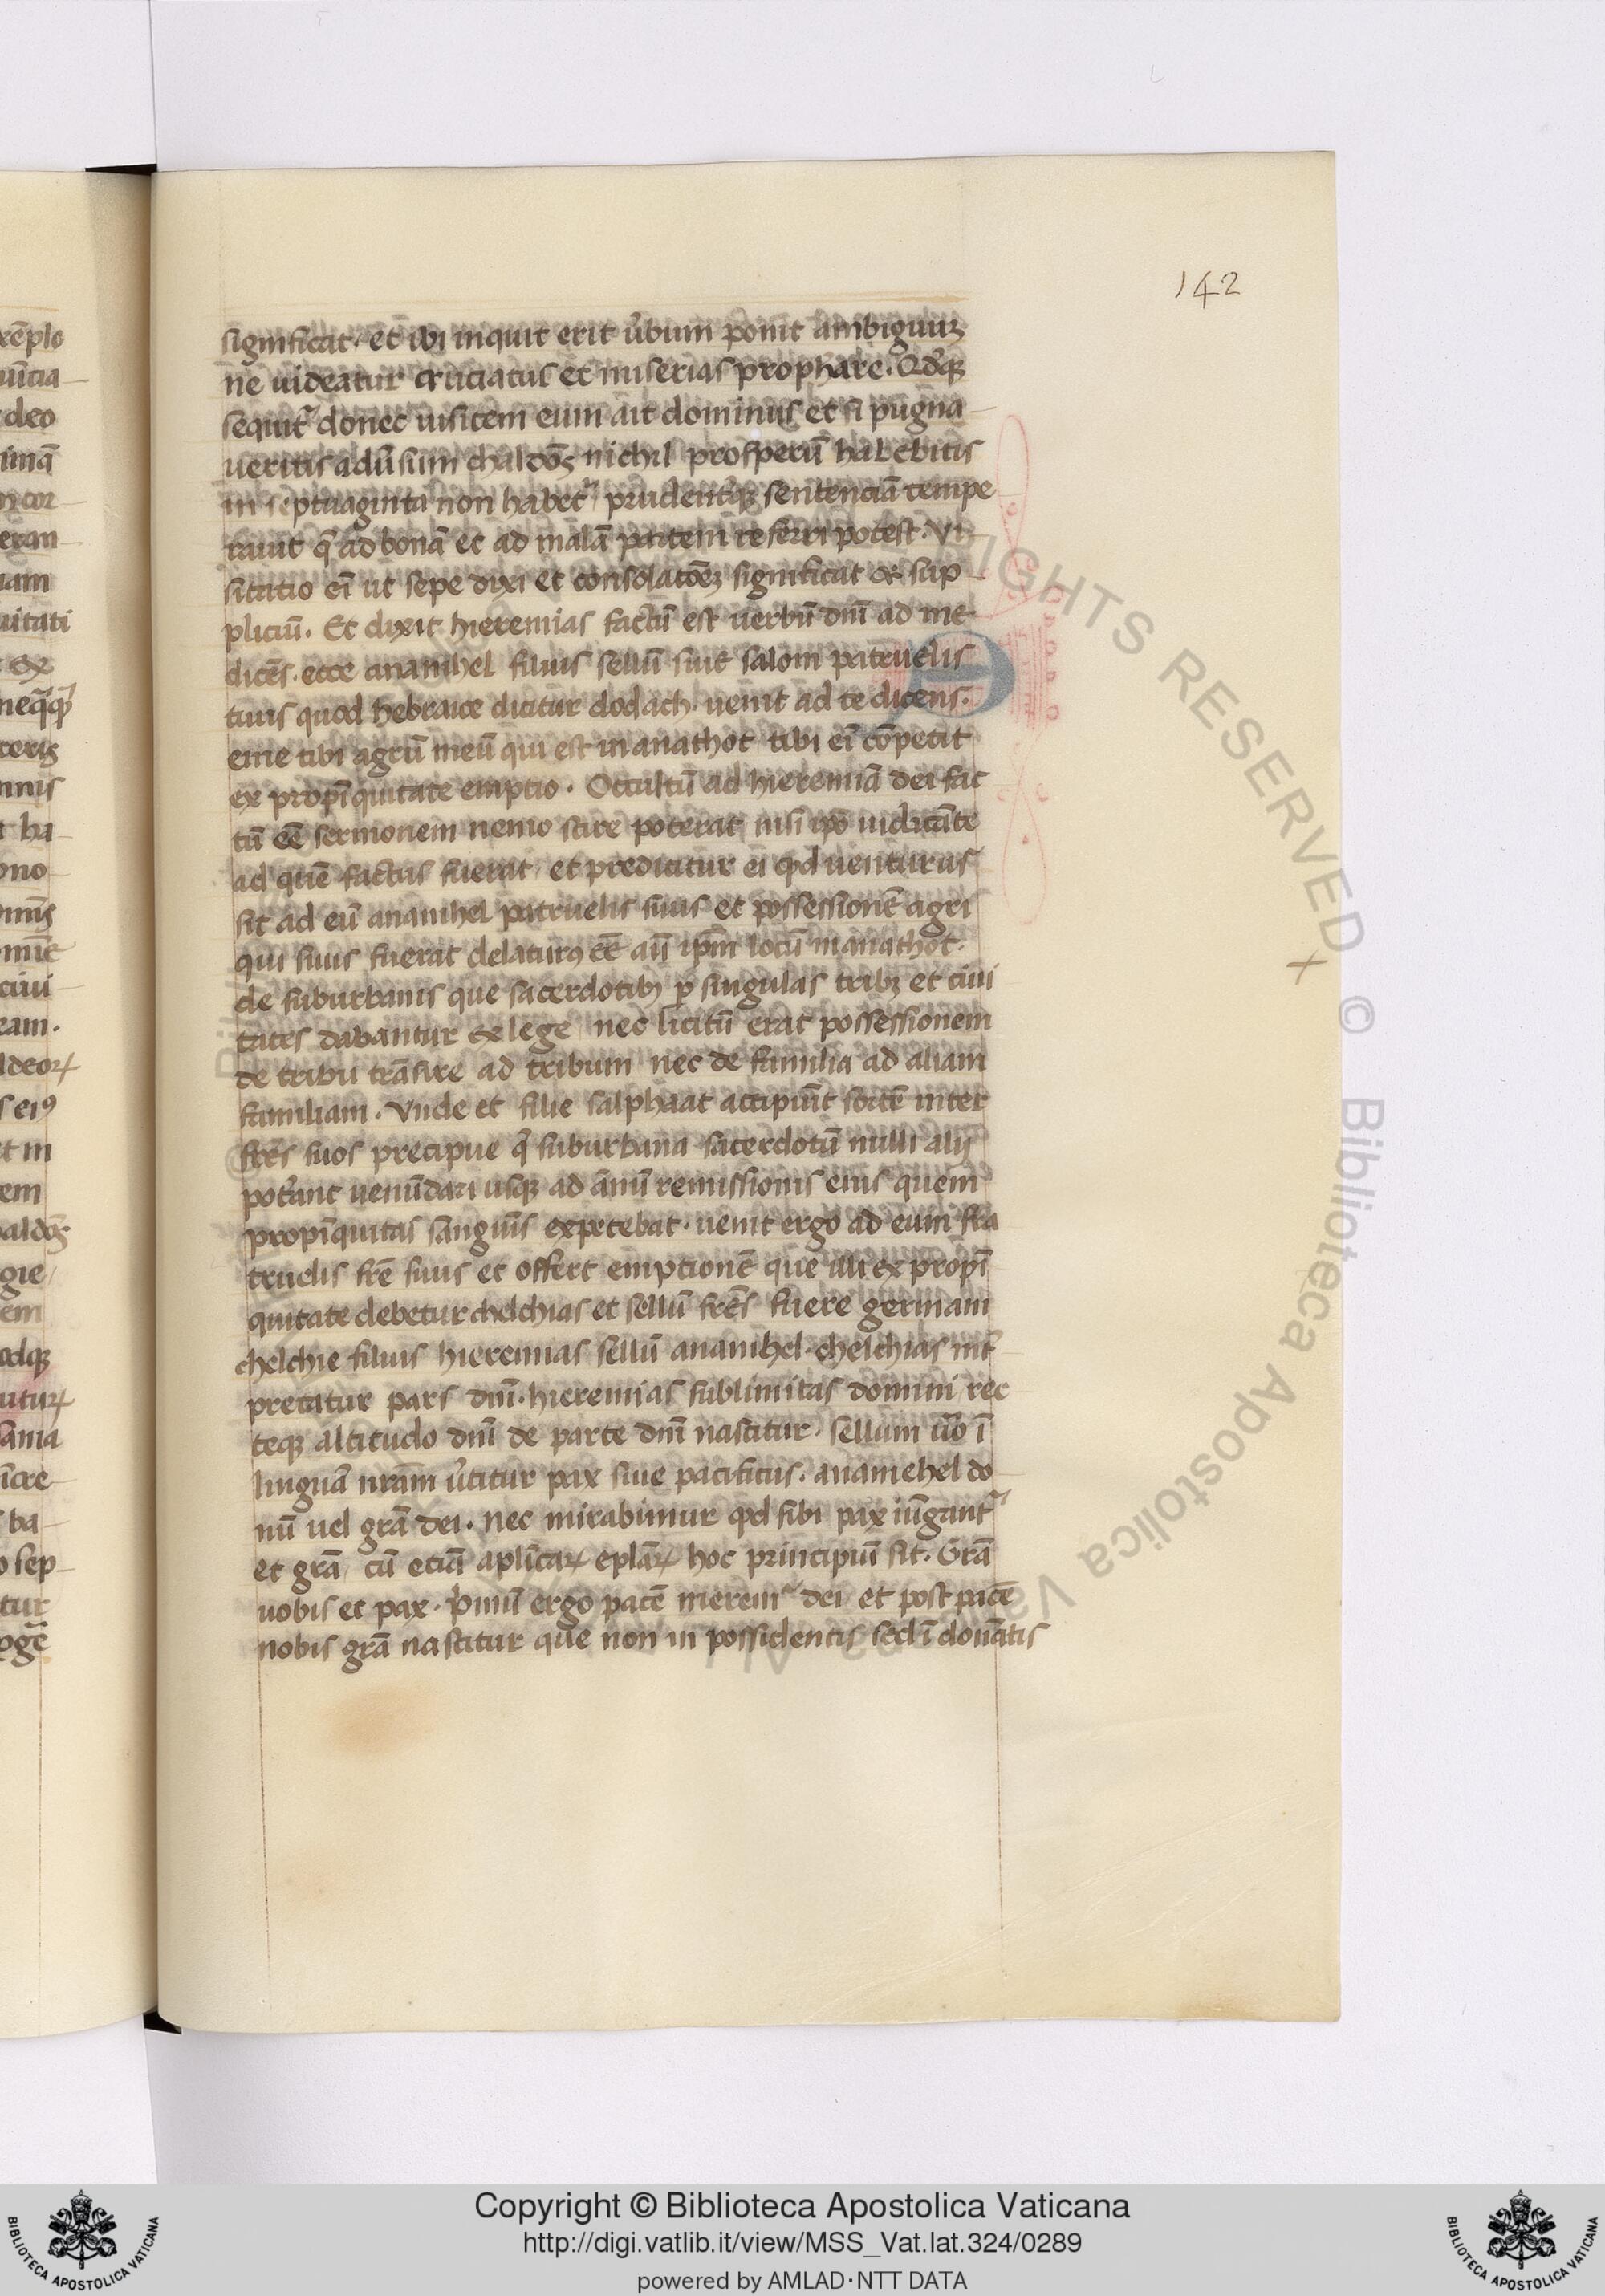 142
significat· et ibi inquit erit u̓bum ponit ambiguuꝫ
ne uideatur cruciatus et miserias prophare· Qdq̓ꝫ
sequit᷑ donec uisitem eum ait dominus et si pugna-
ueritis adu̓sum chaldōs nichil prosperū habebitis
in septuaginta non habet᷑ prudent̓qꝫ sentenciā tempe
rauit q̓ ad bonā et ad malā partem referri potest· Vi-
sitatio eī ut sepe dixi et consolatōeꝫ significat et sup-
pliciū· Et dixit hieremias factū est uerbū dn̄i ad me
dicēs· ecce anamhel filius sellū siue salom patruelis
tuus quod hebraice dicitur dodach· uenit ad te dicens·
eme tibi agrū meū qui est in anathot tibi eī cōpetit
ex propīquitate emptio· Occultū ad hieremiā dei fac
tū eē sermonem nemo scire poterat nisi ip̄o iudicāte
ad quē factus fuerat et predicitur ei qd uenturus
sit ad eū anamhel patruelis suus et possessionē agri
qui suus fuerat delaturꝰ eē aū ip̄m locū in anathot·
de suburbanis que sacerdotibꝫ ꝑ singulas tribꝫ et ciui
tates dabantur ex lege nec licitū erat possessionem
de tribu trāsire ad tribum nec de familia ad aliam
familiam· Vnde et filie salphaat accipiūt sortē inter
frēs suos precipue q̓ suburbana sacerdotū nulli alij
pot̓ant uenūdari usqꝫ ad annū remissionis eius quem
propīquitas sanguīs expetebat· uenit ergo ad eum fra
truelis frē suus et offert emptionē que illi ex propī
quitate debetur chelchias et sellū frēs fuere germani
chelchie filius hieremias sellū anamhel· chelchias int̓
pretatur pars dn̄i· hieremias sublimitas domini rec
teqꝫ altitudo dn̄i de parte dn̄i nascitur· sellum u̓o ī
linguā nr̄am u̓titur pax siue pacificus· anamehel do-
nū uel gr̄a dei· nec mirabimur qd sibi pax iūgant᷑
et gr̄a cū eciā aplicaꝝ eplaꝝ hoc principiū sit· Gr̄a
uobis et pax· P̓mū ergo pacē merem᷑ dei et post pacē
nobis gr̄a nascitur que non in possidentis sed ī donātis
RIGHTS RESERVED © Biblioteca Apostolica Vaticana
Copyright © Biblioteca Apostolica Vaticana
http://digi.vatlib.it/view/MSS_Vat.lat.324/0289
powered by AMLAD·NTT DATA
BIBLIOTECA APOSTOLICA VATICANA
BIBLIOTECA APOSTOLICA VATICANA